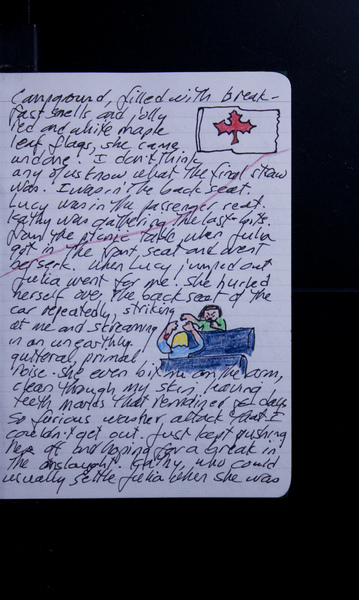 Campground, filled with break-
fast smells and jolly
red and white maple
leaf flags, she came
undone. I don't think
any of us know what the final straw
was. I was in the back seat.
Lucy was in the passenger seat.
Kathy was gathering the last bits
from the picnic table, when Julia
got in the front seat and went
berserk. When Lucy jumped out
Julia went for me. She hurled
herself over the back seat of the
car repeatedly, striking
at me and screaming
in an unearthly,
guttural, primal
noise. She even bit me on the arm,
clean through my skin, leaving
teeth marks that remained for days.
So furious was her attack that I
couldn't get out. Just kept pushing
her off and hoping for a break in
the onslaught. Kathy, who could
usually settle Julia when she was